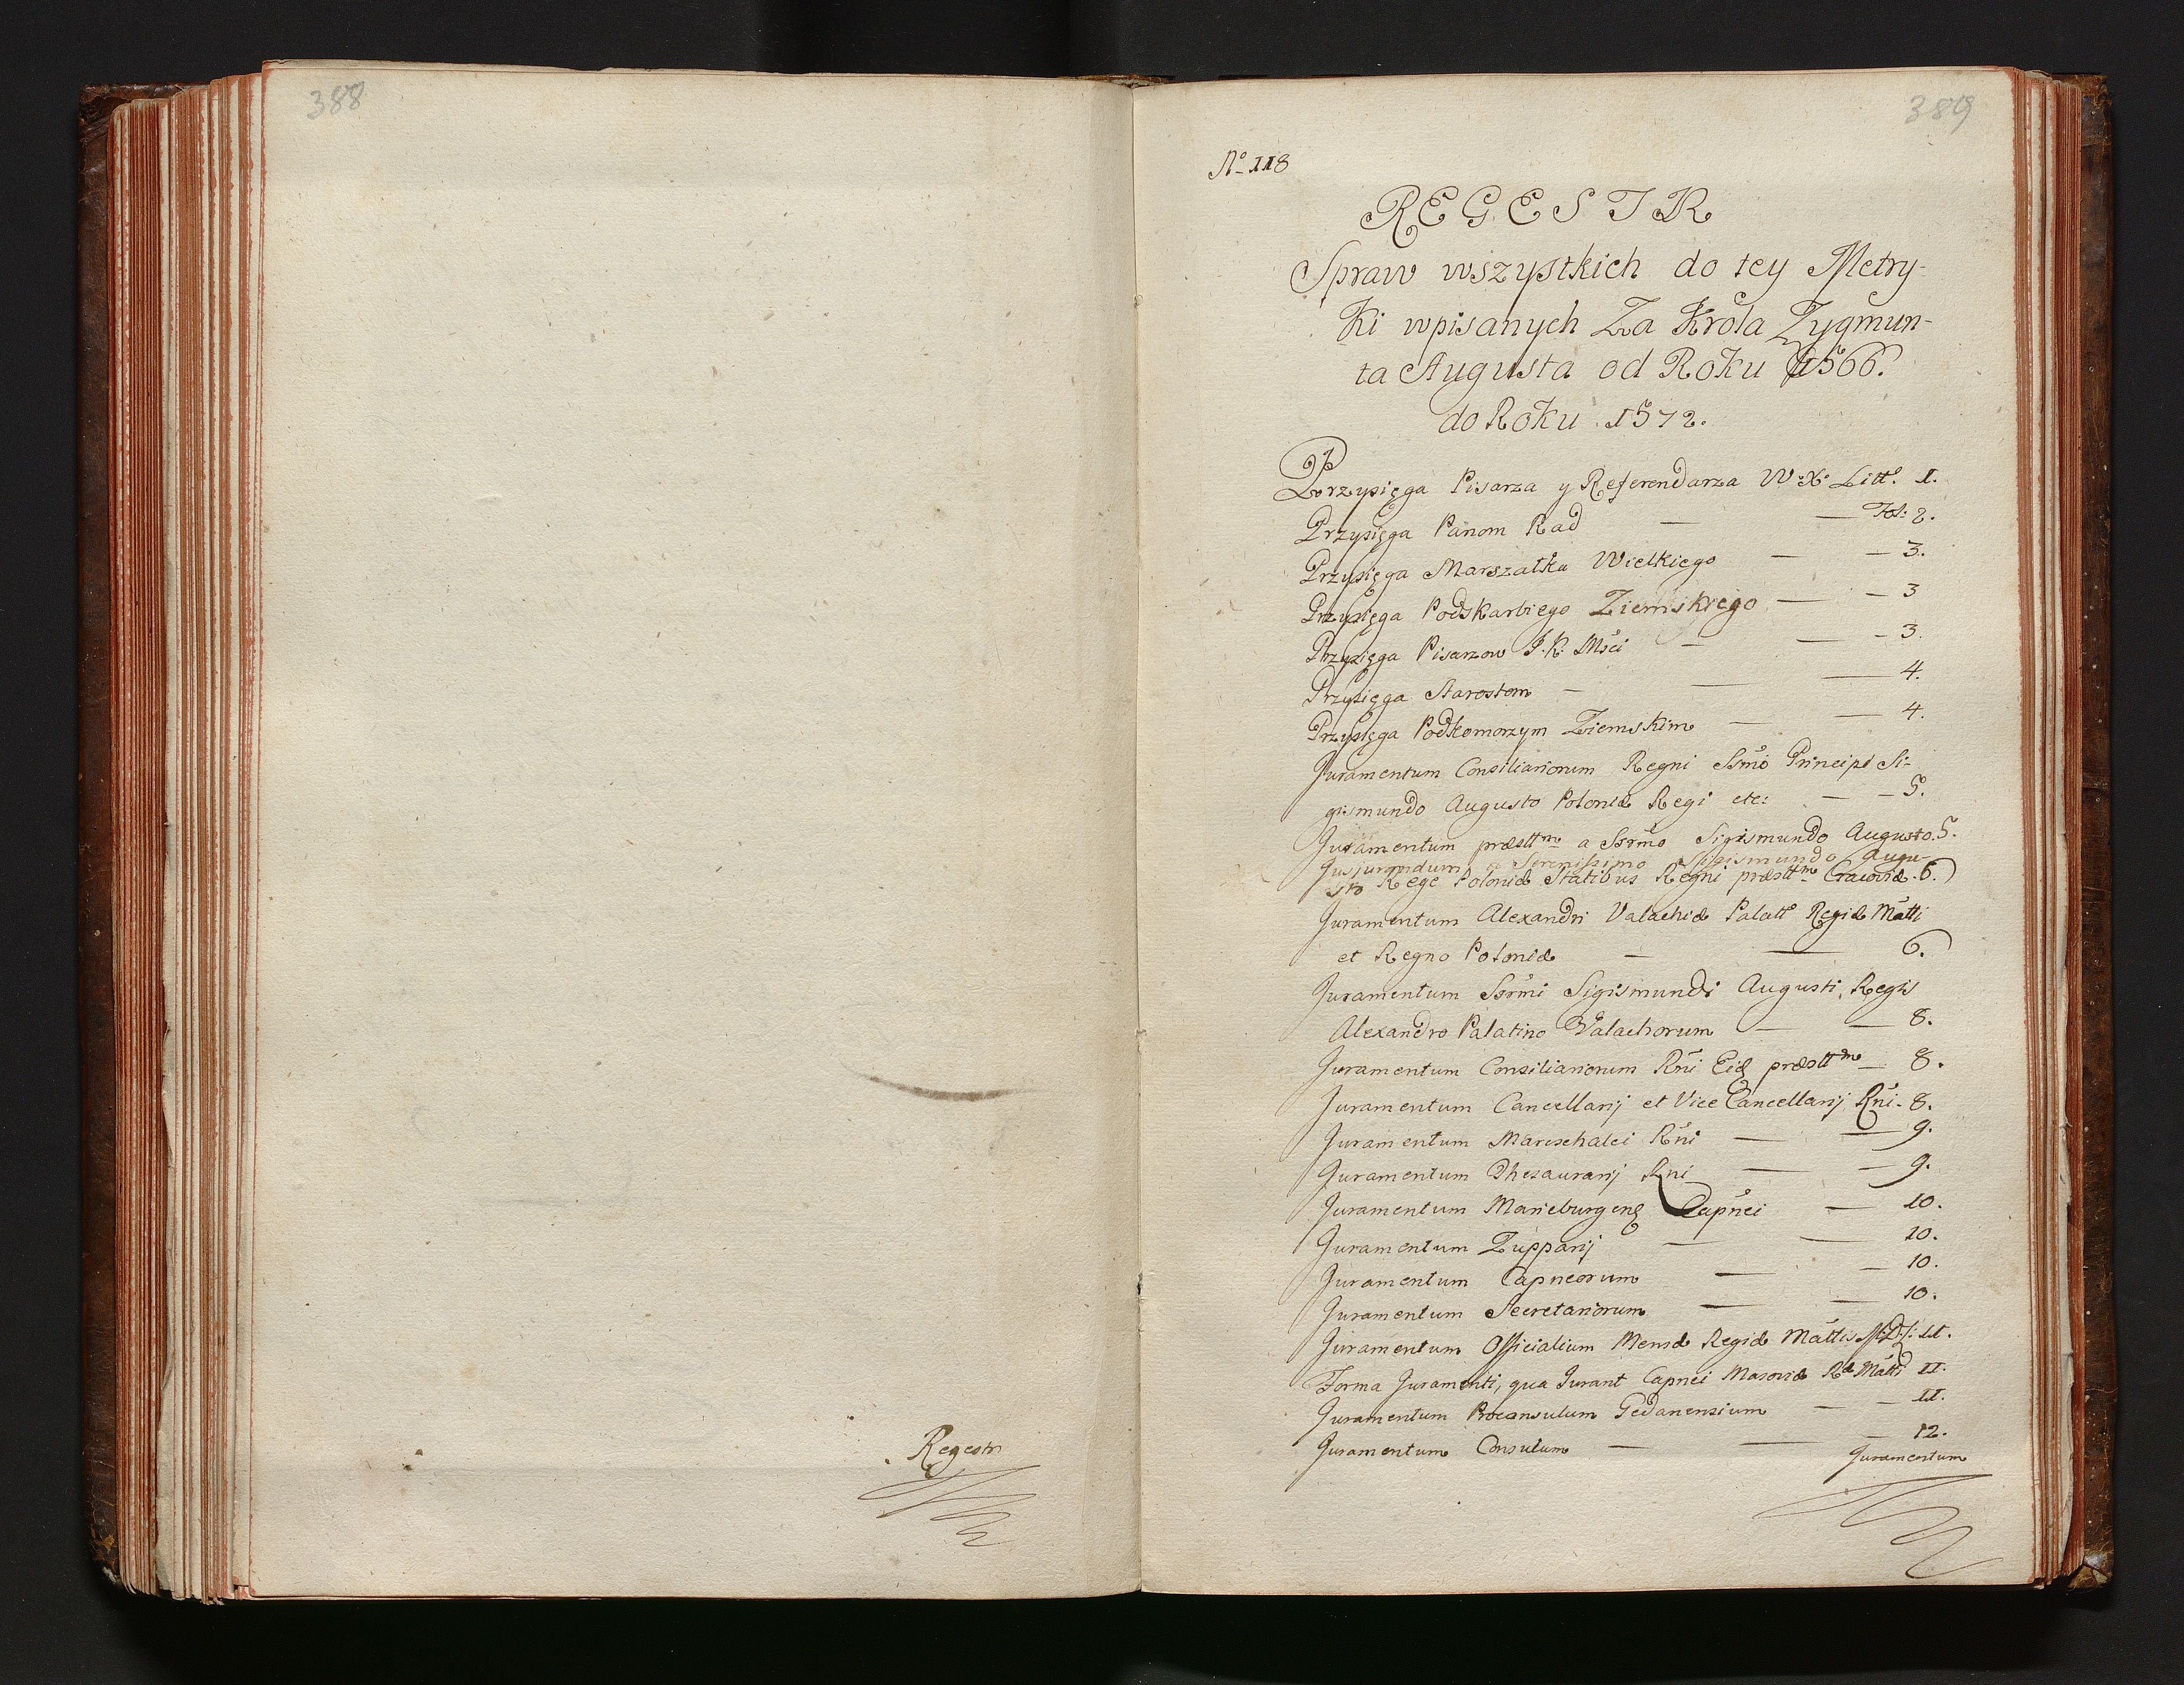 388
Regestr
389
No 118
REGESTR
Spraw wszystkich do tey Metry-
ki wpisanych Za Krola Zygmun-
ta Augusta od Roku 1566.
do Roku 1572.
Przysięga Pisarza y Referendarza W: X: Litt: 1.
Przysięga Panom Rad — — Fol: 2.
Przysięga Marszałka Wielkiego — — 3.
Przysięga Podskarbiego Ziemskiego — — 3
Przysięga Pisarzow J. K. Mści — — — 3.
Przysięga Starostom — — — 4.
Przysięga Podkomorzym Ziemskim — — 4.
Juramentum Consiliariorum Regni Ssmo Principi Si-
gismundo Augusto Poloniæ Regi etc: — — 5.
Juramentum præsttm a Ssrmo Sigismundo Augusto. 5.
Jusjurandum a Serenissimo Sigismundo Augu-
sto Rege Poloniæ Statibus Regni præsttm Cracoviæ. 6.
Juramentum Alexandri Valachiæ Palatt Regiæ Matti
et Regno Poloniæ — — 6.
Juramentum Ssrmi Sigismundi Augusti, Regis
Alexandro Palatino Valachorum — — 8.
Juramentum Consiliariorum Rni Eid præsttm — 8.
Juramentum Cancellarij et Vice Cancellarij Rni. 8.
Juramentum Mareschalci Rni — — 9.
Juramentum Thesaurarij Rni — — 9.
Juramentum Marieburgens Capnei — 10.
Juramentum Zupparij — — 10.
Juramentum Capneorum — — 10.
Juramentum Secretariorum — — 10.
Juramentum Officialium Mensæ Regiæ Mattis 11.
Forma Juramenti, qua Jurant Capnei Masoviæ Ræ Matti 11.
Juramentum Proconsulum Gedanensium — — 11.
Juramentum Consulum — — — 12.
Juramentum